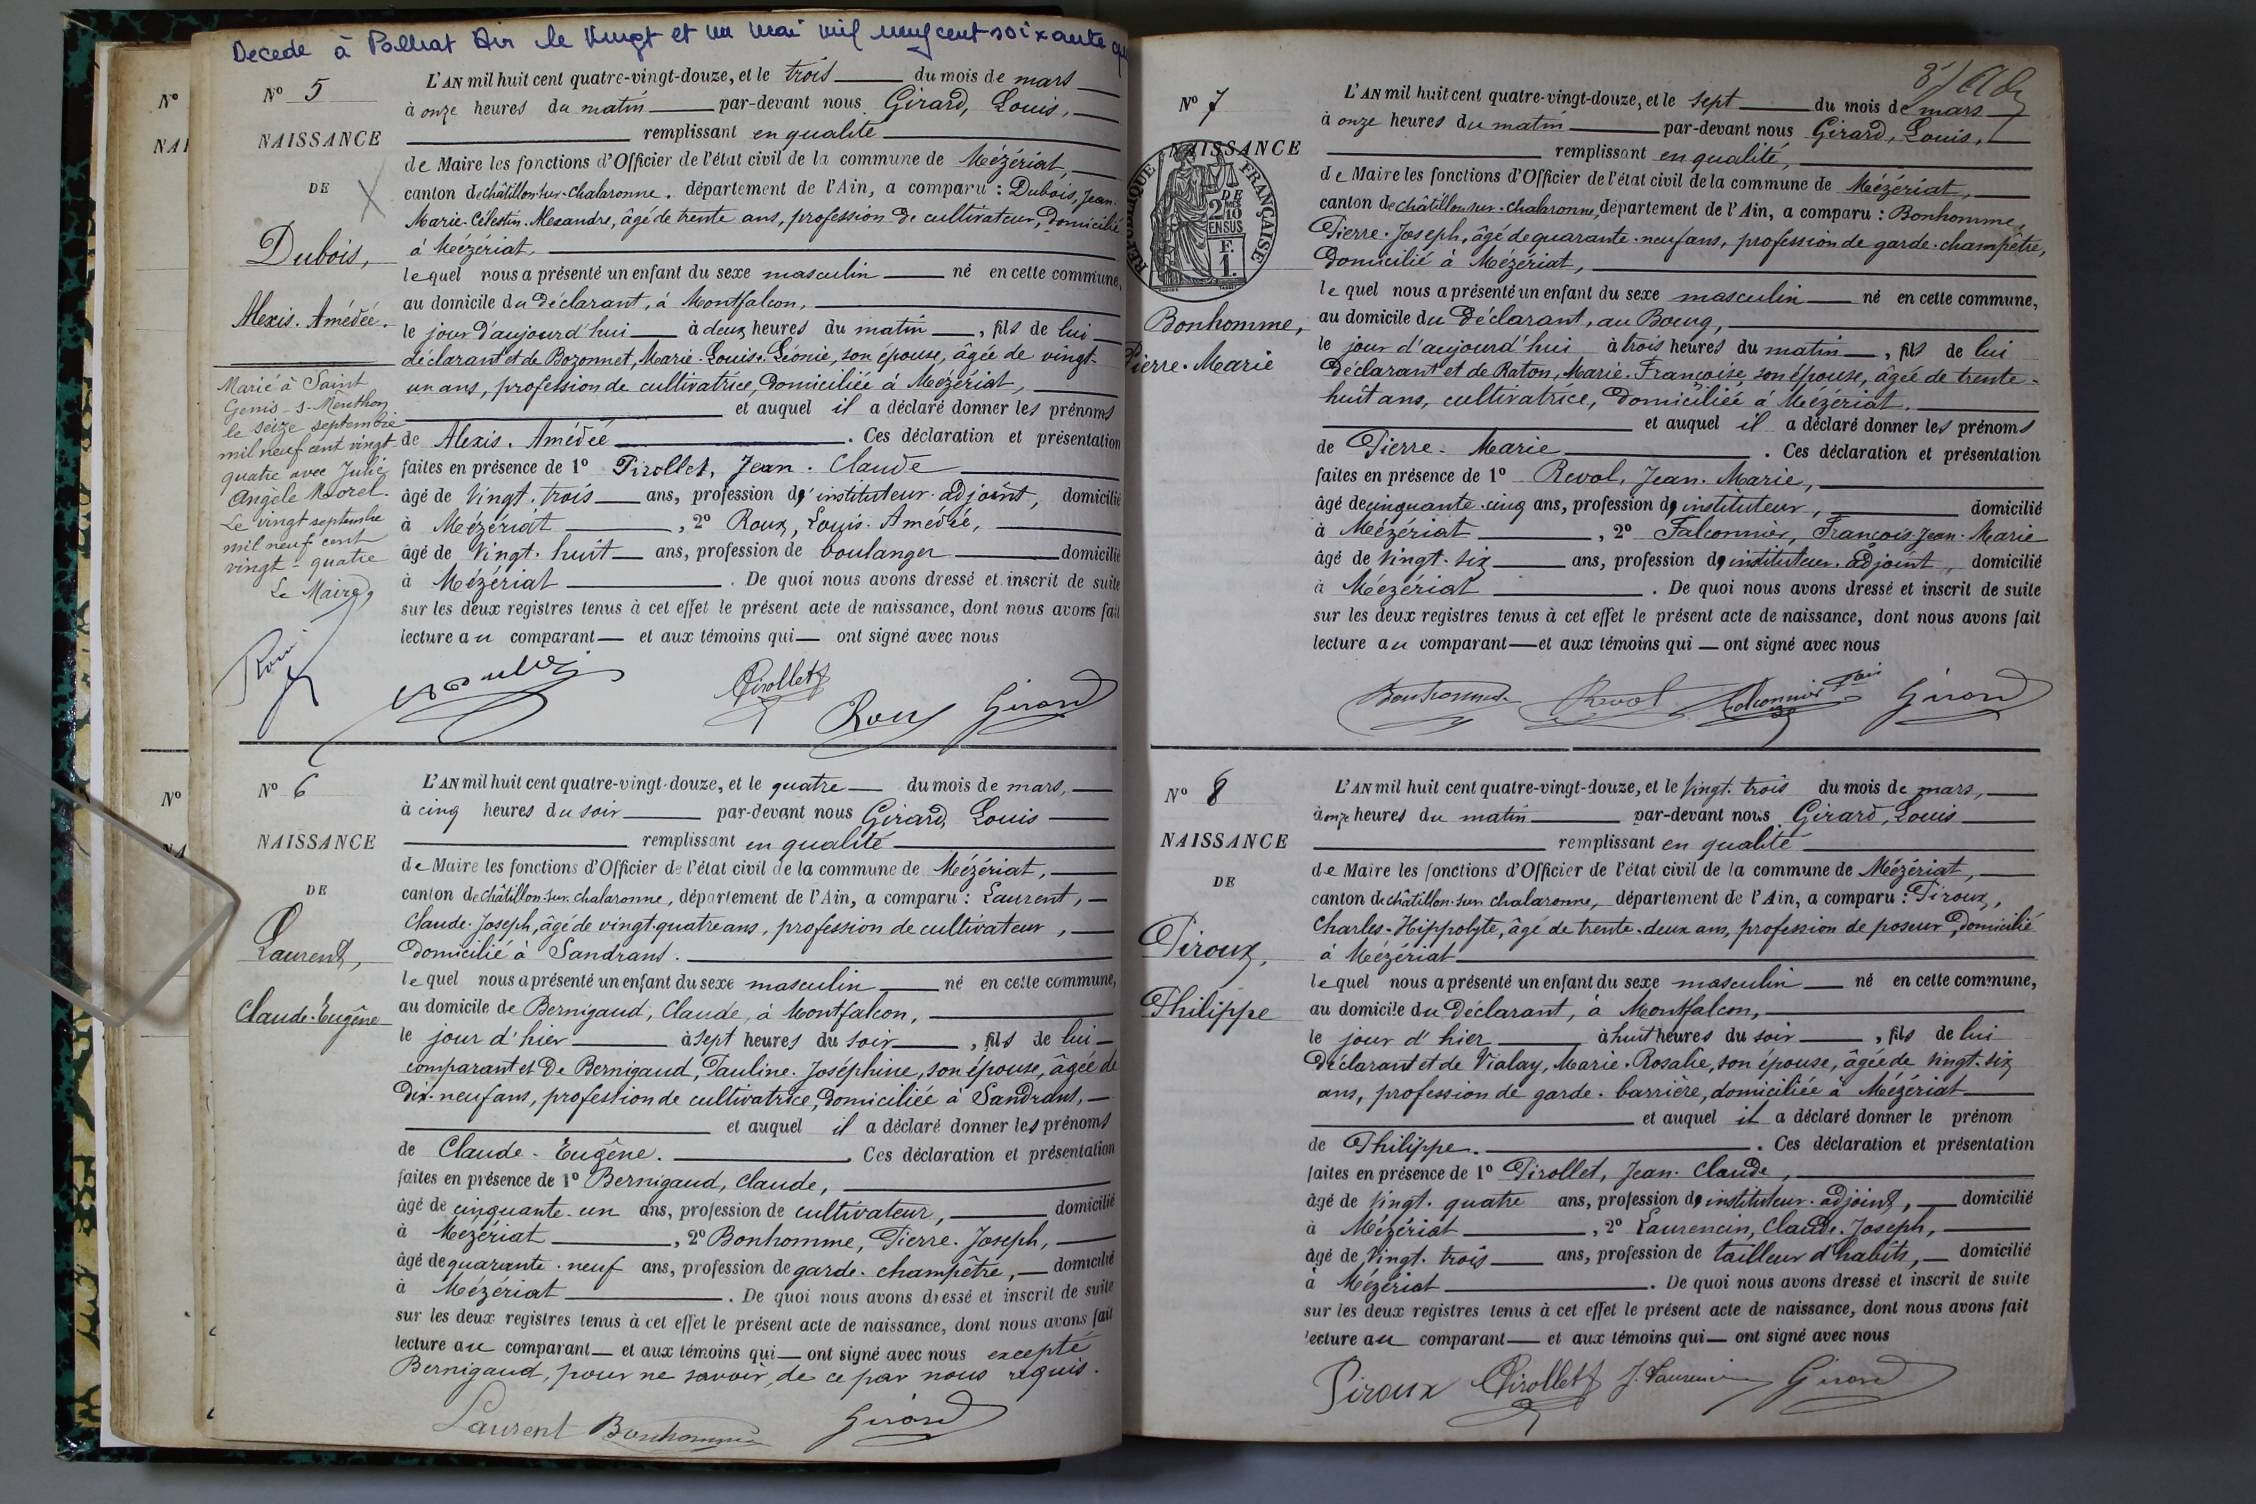 Décédé à Polliat Ain le vingt et un mai mil neuf cent soixante
N° 5
NAISSANCE
DE
Dubois,
Alexis. Amédée.
Marié à Saint
Genis-s-Menthon
le seize septembre
mil neuf cent vingt
quatre avec Julie
Angèle Morel.
Le vingt septembre
mil neuf cent
vingt-quatre
Le Maire,
L'AN mil huit cent quatre-vingt-douze, et le trois du mois de mars
à onze heures du matin par-devant nous Girard, Louis,
remplissant en qualité
de Maire les fonctions d'Officier de l'état civil de la commune de Mézériat,
canton de châtillon-sur-chalaronne. département de l'Ain, a comparu : Dubois, Jean-
Marie-Célestin-Alexandre, âgé de trente ans, profession de cultivateur, domicilié
à Mézériat,
lequel nous a présenté un enfant du sexe masculin né en cette commune,
au domicile du déclarant, à Montfalcon,
le jour d'aujourd'hui à deux heures du matin, fils de lui
déclarant et de Bozonnet, Marie-Louise-Léonie, son épouse, âgée de vingt-
un ans, profession de cultivatrice, domiciliée à Mézériat,
et auquel il a déclaré donner les prénoms
de Alexis. Amédée. Ces déclaration et présentation
faites en présence de 1° Pirollet, Jean. Claude
âgé de vingt. trois ans, profession d'instituteur. adjoint, domicilié
à Mézériat, 2° Roux, Louis. Amédée,
âgé de vingt. huit ans, profession de boulanger domicilié
à Mézériat. De quoi nous avons dressé et inscrit de suite
sur les deux registres tenus à cet effet le présent acte de naissance, dont nous avons fait
lecture au comparant et aux témoins qui ont signé avec nous
Pirollet
Roux Girard
N° 6
NAISSANCE
DE
Laurent,
Claude-Eugène
L'AN mil huit cent quatre-vingt-douze, et le quatre du mois de mars,
à cinq heures du soir par-devant nous Girard, Louis
remplissant en qualité
de Maire les fonctions d'Officier de l'état civil de la commune de Mézériat,
canton de châtillon-sur-chalaronne, département de l'Ain, a comparu : Laurent,
Claude-Joseph, âgé de vingt-quatre ans, profession de cultivateur,
domicilié à Sandrans.
lequel nous a présenté un enfant du sexe masculin né en cette commune,
au domicile de Bernigaud, Claude, à Montfalcon,
le jour d'hier à sept heures du soir, fils de lui
comparant et de Bernigaud, Pauline. Joséphine, son épouse, âgée de
dix-neuf ans, profession de cultivatrice, domiciliée à Sandrans,
et auquel il a déclaré donner les prénoms
de Claude-Eugène. Ces déclaration et présentation
faites en présence de 1° Bernigaud, Claude,
âgé de cinquante-un ans, profession de cultivateur, domicilié
à Mézériat, 2° Bonhomme, Pierre. Joseph,
âgé de quarante-neuf ans, profession de garde. champêtre, domicilié
à Mézériat. De quoi nous avons dressé et inscrit de suite
sur les deux registres tenus à cet effet le présent acte de naissance, dont nous avons fait
lecture au comparant et aux témoins qui ont signé avec nous excepté
Bernigaud, pour ne savoir, de ce par nous requis.
Laurent Bonhomme Girard
N° 7
NAISSANCE
DE
RÉPUBLIQUE FRANÇAISE
2/10 EN SUS
F. 1.
Bonhomme,
Pierre. Marie
L'AN mil huit cent quatre-vingt-douze, et le sept du mois de mars
à onze heures du matin par-devant nous Girard, Louis,
remplissant en qualité,
de Maire les fonctions d'Officier de l'état civil de la commune de Mézériat,
canton de châtillon-sur-chalaronne, département de l'Ain, a comparu : Bonhomme,
Pierre. Joseph, âgé de quarante-neuf ans, profession de garde-champêtre,
domicilié à Mézériat,
lequel nous a présenté un enfant du sexe masculin né en cette commune,
au domicile du déclarant, au Bourg,
le jour d'aujourd'hui à trois heures du matin, fils de lui
déclarant et de Raton, Marie-Françoise son épouse, âgée de trente-
huit ans, cultivatrice, domiciliée à Mézériat.
et auquel il a déclaré donner les prénoms
de Pierre. Marie. Ces déclaration et présentation
faites en présence de 1° Revol, Jean. Marie,
âgé de cinquante-cinq ans, profession d'instituteur, domicilié
à Mézériat, 2° Falconnier, François-Jean-Marie
âgé de vingt. six ans, profession d'instituteur. adjoint, domicilié
à Mézériat. De quoi nous avons dressé et inscrit de suite
sur les deux registres tenus à cet effet le présent acte de naissance, dont nous avons fait
lecture au comparant et aux témoins qui ont signé avec nous
Bonhomme Revol Falconnier Fois Girard
N° 8
NAISSANCE
DE
Piroux,
Philippe
L'AN mil huit cent quatre-vingt-douze, et le vingt. trois du mois de mars,
à onze heures du matin par-devant nous Girard, Louis
remplissant en qualité
de Maire les fonctions d'Officier de l'état civil de la commune de Mézériat,
canton de châtillon-sur chalaronne, département de l'Ain, a comparu : Piroux,
Charles-Hippolyte, âgé de trente-deux ans, profession de poseur, domicilié
à Mézériat
lequel nous a présenté un enfant du sexe masculin né en cette commune,
au domicile du déclarant, à Montfalcon,
le jour d'hier à huit heures du soir, fils de lui
déclarant et de Vialay, Marie. Rosalie, son épouse, âgée de vingt-six
ans, profession de garde-barrière, domiciliée à Mézériat
et auquel il a déclaré donner le prénom
de Philippe. Ces déclaration et présentation
faites en présence de 1° Pirollet, Jean-Claude,
âgé de vingt. quatre ans, profession d'instituteur-adjoint, domicilié
à Mézériat, 2° Laurencin, Claude. Joseph,
âgé de vingt. trois ans, profession de tailleur d'habits, domicilié
à Mézériat. De quoi nous avons dressé et inscrit de suite
sur les deux registres tenus à cet effet le présent acte de naissance, dont nous avons fait
lecture au comparant et aux témoins qui ont signé avec nous
Piroux Pirollet J. Laurencin Girard